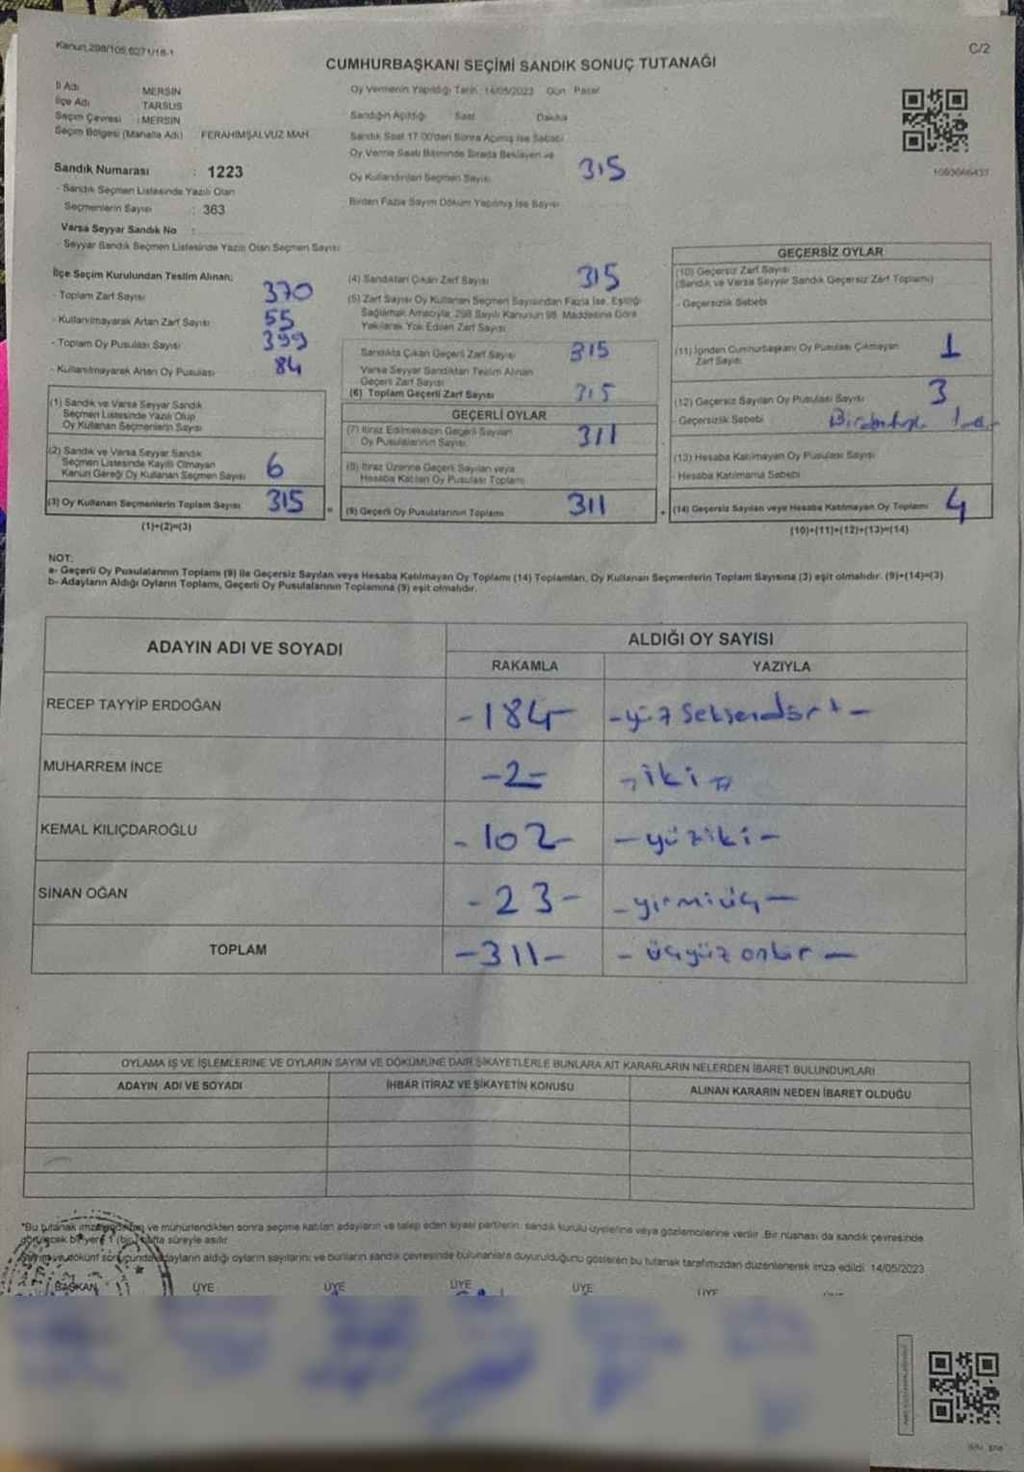 Kanun 298/105, 6271/18-1
C/2
CUMHURBAŞKANI SEÇİMİ SANDIK SONUÇ TUTANAĞI
İl Adı MERSİN
İlçe Adı TARSUS
Seçim Çevresi : MERSİN
Seçim Bölgesi (Mahalle Adı) FERAHİMŞALVUZ MAH.
Sandık Numarası : 1223
- Sandık Seçmen Listesinde Yazılı Olan
Seçmenlerin Sayısı : 363
Varsa Seyyar Sandık No :
- Seyyar Sandık Seçmen Listesinde Yazılı Olan Seçmen Sayısı
Oy Vermenin Yapıldığı Tarih: 14/05/2023 Gün Pazar
Sandığın Açıldığı Saat Dakika
Sandık Saat 17.00'den Sonra Açılmış İse Sebebi
Oy Verme Saati Bitiminde Sırada Bekleyen ve
Oy Kullandırılan Seçmen Sayısı 315
Birden Fazla Sayım Döküm Yapılmış İse Sayısı
İlçe Seçim Kurulundan Teslim Alınan;
- Toplam Zarf Sayısı 370
- Kullanılmayarak Artan Zarf Sayısı 55
- Toplam Oy Pusulası Sayısı 399
- Kullanılmayarak Artan Oy Pusulası 84
(1) Sandık ve Varsa Seyyar Sandık
Seçmen Listesinde Yazılı Olup
Oy Kullanan Seçmenlerin Sayısı
(2) Sandık ve Varsa Seyyar Sandık
Seçmen Listesinde Kayıtlı Olmayan
Kanun Gereği Oy Kullanan Seçmen Sayısı 6
(3) Oy Kullanan Seçmenlerin Toplam Sayısı 315
(1)+(2)=(3)
(4) Sandıktan Çıkan Zarf Sayısı 315
(5) Zarf Sayısı Oy Kullanan Seçmen Sayısından Fazla İse, Eşitliği
Sağlamak Amacıyla, 298 Sayılı Kanunun 98. Maddesine Göre
Yakılarak Yok Edilen Zarf Sayısı
Sandıkta Çıkan Geçerli Zarf Sayısı 315
Varsa Seyyar Sandıktan Teslim Alınan
Geçerli Zarf Sayısı
(6) Toplam Geçerli Zarf Sayısı 315
GEÇERLİ OYLAR
(7) İtiraz Edilmeksizin Geçerli Sayılan
Oy Pusulalarının Sayısı 311
(8) İtiraz Üzerine Geçerli Sayılan veya
Hesaba Katılan Oy Pusulası Toplamı
(9) Geçerli Oy Pusulalarının Toplamı 311
GEÇERSİZ OYLAR
(10) Geçersiz Zarf Sayısı
(Sandık ve Varsa Seyyar Sandık Geçersiz Zarf Toplamı)
- Geçersizlik Sebebi
(11) İçinden Cumhurbaşkanı Oy Pusulası Çıkmayan
Zarf Sayısı 1
(12) Geçersiz Sayılan Oy Pusulası Sayısı 3
- Geçersizlik Sebebi
(13) Hesaba Katılmayan Oy Pusulası Sayısı
- Hesaba Katılmama Sebebi
(14) Geçersiz Sayılan veya Hesaba Katılmayan Oy Toplamı 4
(10)+(11)+(12)+(13)=(14)
NOT:
a- Geçerli Oy Pusulalarının Toplamı (9) ile Geçersiz Sayılan veya Hesaba Katılmayan Oy Toplamı (14) Toplamları, Oy Kullanan Seçmenlerin Toplam Sayısına (3) eşit olmalıdır. (9)+(14)=(3)
b- Adayların Aldığı Oyların Toplamı, Geçerli Oy Pusulalarının Toplamına (9) eşit olmalıdır.
ADAYIN ADI VE SOYADI ALDIĞI OY SAYISI
RAKAMLA YAZIYLA
RECEP TAYYİP ERDOĞAN -184- -yüz seksendört-
MUHARREM İNCE -2- -iki-
KEMAL KILIÇDAROĞLU -102- -yüziki-
SİNAN OĞAN -23- -yirmiüç-
TOPLAM -311- -üçyüz onbir-
OYLAMA İŞ VE İŞLEMLERİNE VE OYLARIN SAYIM VE DÖKÜMÜNE DAİR ŞİKAYETLERLE BUNLARA AİT KARARLARIN NELERDEN İBARET BULUNDUKLARI
ADAYIN ADI VE SOYADI İHBAR İTİRAZ VE ŞİKAYETİN KONUSU ALINAN KARARIN NEDEN İBARET OLDUĞU
*Bu tutanak imzalandıktan ve mühürlendikten sonra seçime katılan adayların ve talep eden siyasi partilerin, sandık kurulu üyelerine veya gözlemcilerine verilir. Bir nüshası da sandık çevresinde
görülecek bir yere 1 (bir) hafta süreyle asılır.
Sayım ve döküm sonucunda adayların aldığı oyların sayılarını ve bunların sandık çevresinde bulunanlara duyurulduğunu gösteren bu tutanak tarafımızdan düzenlenerek imza edildi. 14/05/2023
BAŞKAN ÜYE ÜYE ÜYE ÜYE ÜYE